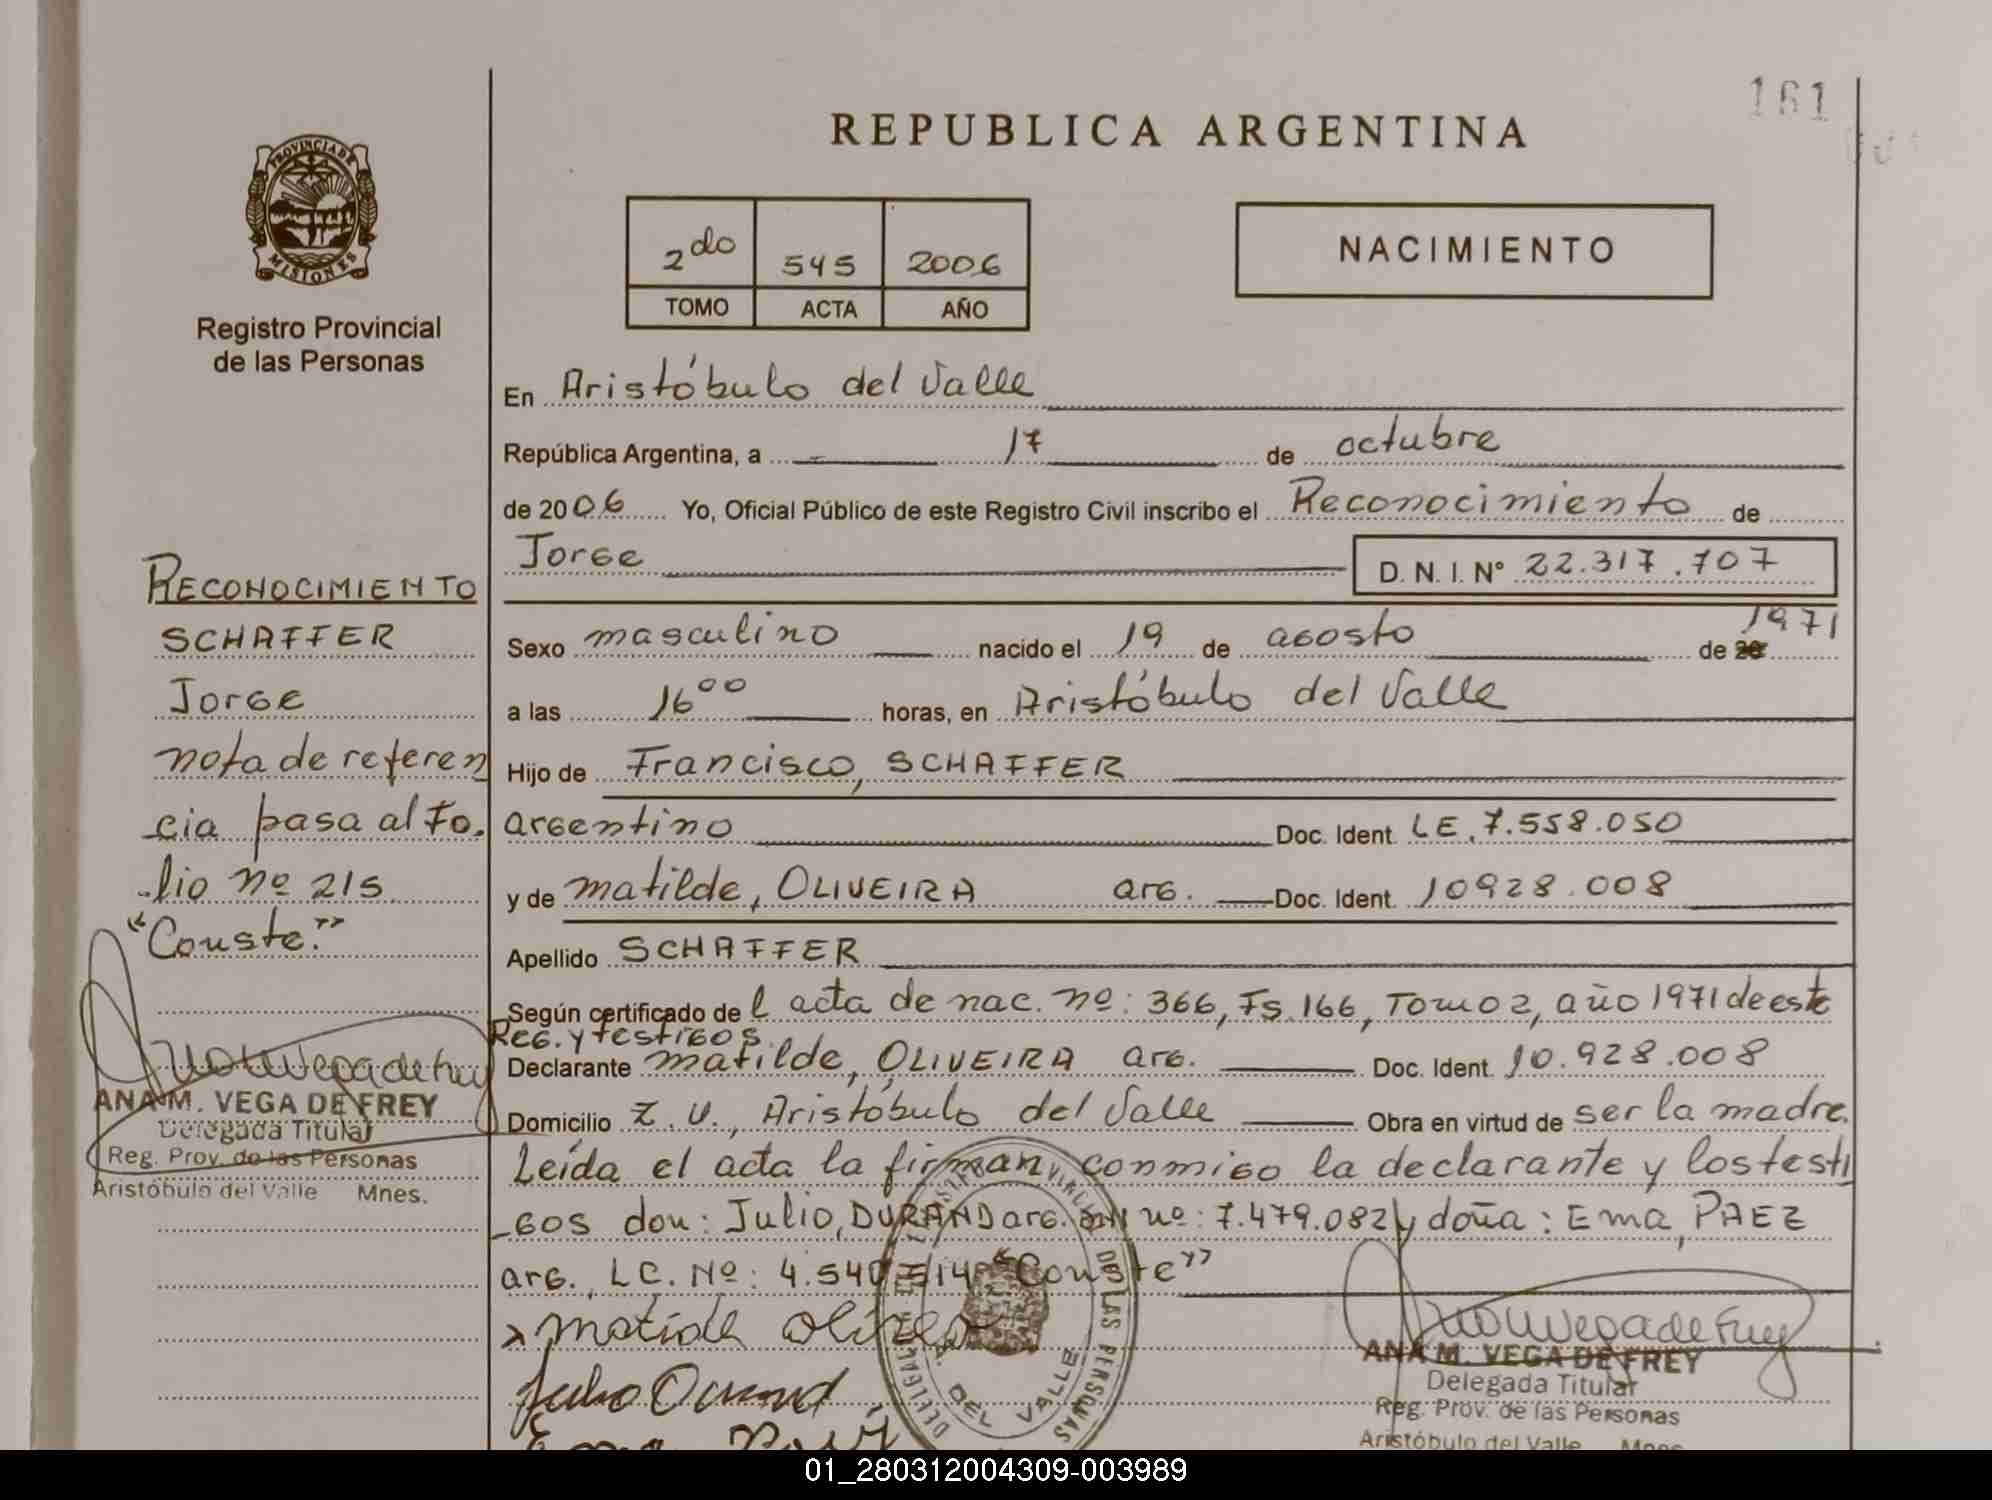 161
REPUBLICA ARGENTINA
PROVINCIA DE
MISIONES
Registro Provincial
de las Personas
2do 545 2006
TOMO ACTA AÑO
NACIMIENTO
En Aristóbulo del Valle
República Argentina, a 17 de octubre
de 2006 Yo, Oficial Público de este Registro Civil inscribo el Reconocimiento de
Jorge D. N. I. N° 22.317.707
Sexo masculino nacido el 19 de agosto de 1971
a las 16 00 horas, en Aristóbulo del Valle
Hijo de Francisco, SCHAFFER
argentino Doc. Ident. LE. 7.558.050
y de Matilde, OLIVEIRA arg. Doc. Ident. 10928.008
Apellido SCHAFFER
Según certificado del acta de nac. nº: 366, Fs. 166, Tomo 2, año 1971 de este
Reg. y testigos.
Declarante Matilde, OLIVEIRA arg. Doc. Ident. 10.928.008
Domicilio Z. U., Aristóbulo del Valle Obra en virtud de ser la madre.
Leída el acta la firman conmigo la declarante y los testi
-gos don: Julio, DURAND arg. nº: 7.479.082 y doña: Ema, PAEZ
arg. LC. Nº: 4.540.514 "Conste"
Matilde Oliveira
Julio Durand
Ema Paez
RECONOCIMIENTO
SCHAFFER
Jorge
nota de referen
cia pasa al Fo.
-lio nº 215
"Conste."
Ana M Vega de Frey
ANA M. VEGA DE FREY
Delegada Titular
Reg. Prov. de las Personas
Aristóbulo del Valle Mnes.
DEL VALLE
Ana M Vega de Frey
ANA M. VEGA DE FREY
Delegada Titular
Reg. Prov. de las Personas
Aristóbulo del Valle Mnes.
01_280312004309-003989